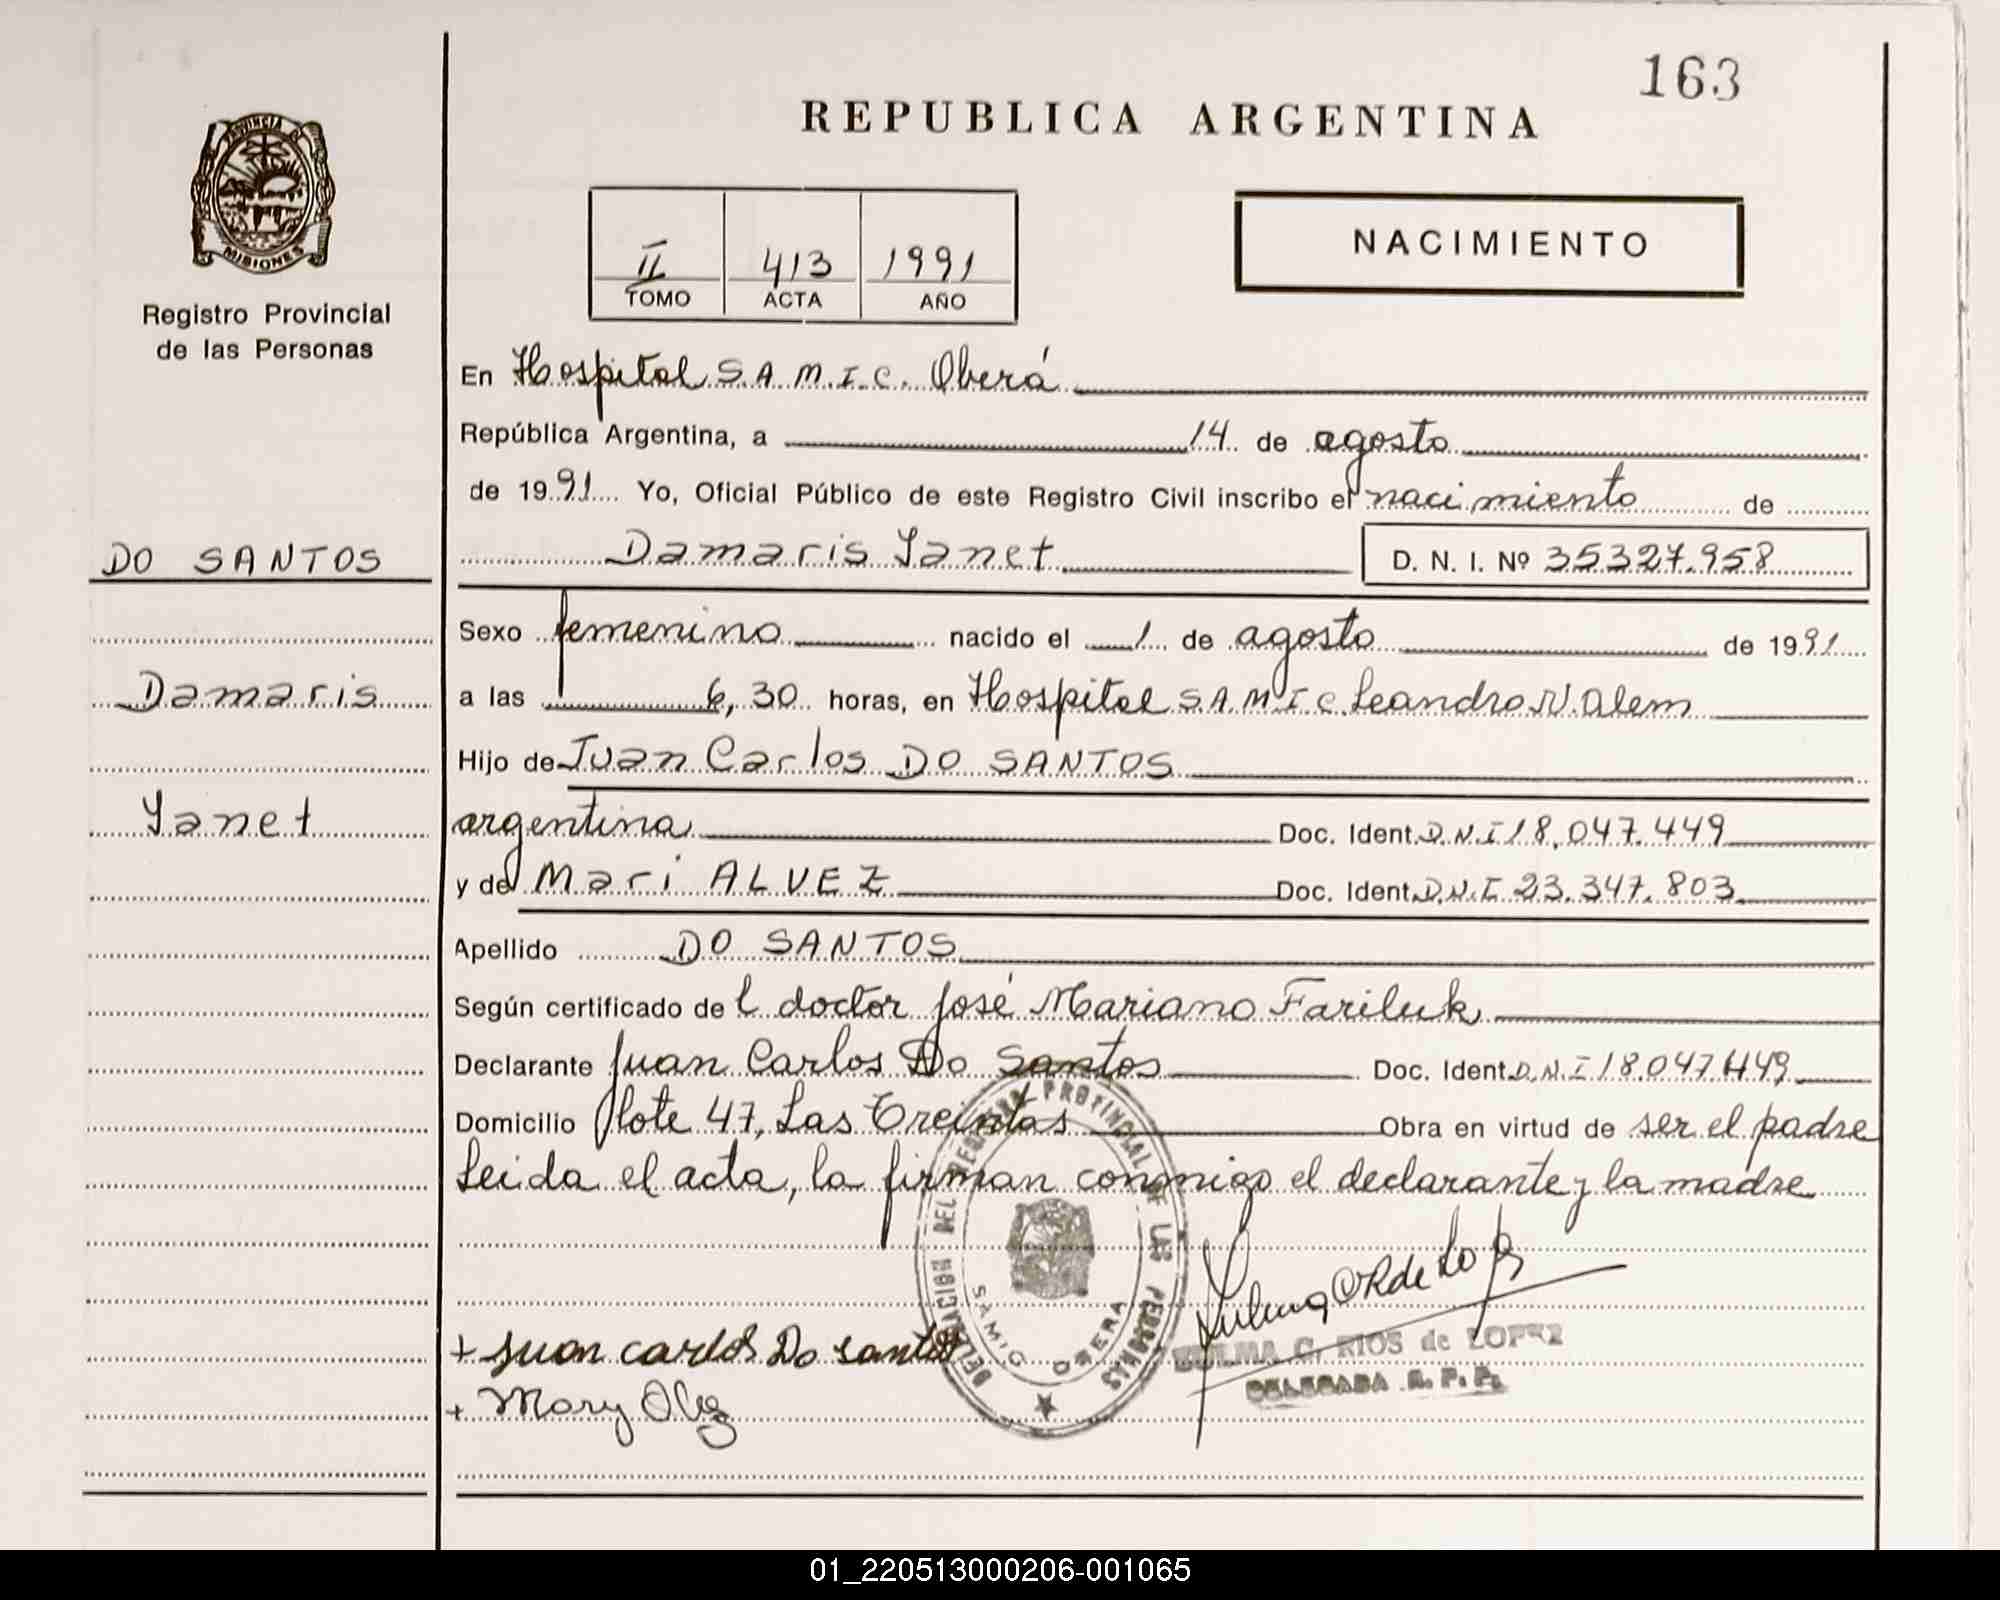 163
REPUBLICA ARGENTINA
PROVINCIA DE
MISIONES
Registro Provincial
de las Personas
II 413 1991
TOMO ACTA AÑO
NACIMIENTO
En Hospital S.A.M.I.C. Oberá
República Argentina, a 14 de agosto
de 1991 Yo, Oficial Público de este Registro Civil inscribo el nacimiento de
DO SANTOS
Damaris Yanet D. N. I. Nº 35327.958
Sexo femenino nacido el 1 de agosto de 1991
Damaris
a las 6,30 horas, en Hospital S.A.M.I.C. Leandro N. Alem
Hijo de Juan Carlos DO SANTOS
Yanet
argentina Doc. Ident. D.N.I 18.047.449
y de Mari ALVEZ Doc. Ident. D.N.I. 23.347.803
Apellido DO SANTOS
Según certificado de l doctor José Mariano Fariluk
Declarante Juan Carlos Do Santos Doc. Ident. D.N.I 18.047.449
Domicilio lote 47, Las Treintas Obra en virtud de ser el padre
Leida el acta, la firman conmigo el declarante y la madre
DELEGACION DEL REGISTRO PROVINCIAL DE LAS PERSONAS
SAMIC OBERA
+ Juan carlos Do santos
ZULMA C. RIOS de LOPEZ
DELEGADA R. P. P.
+ Mary
01_220513000206-001065